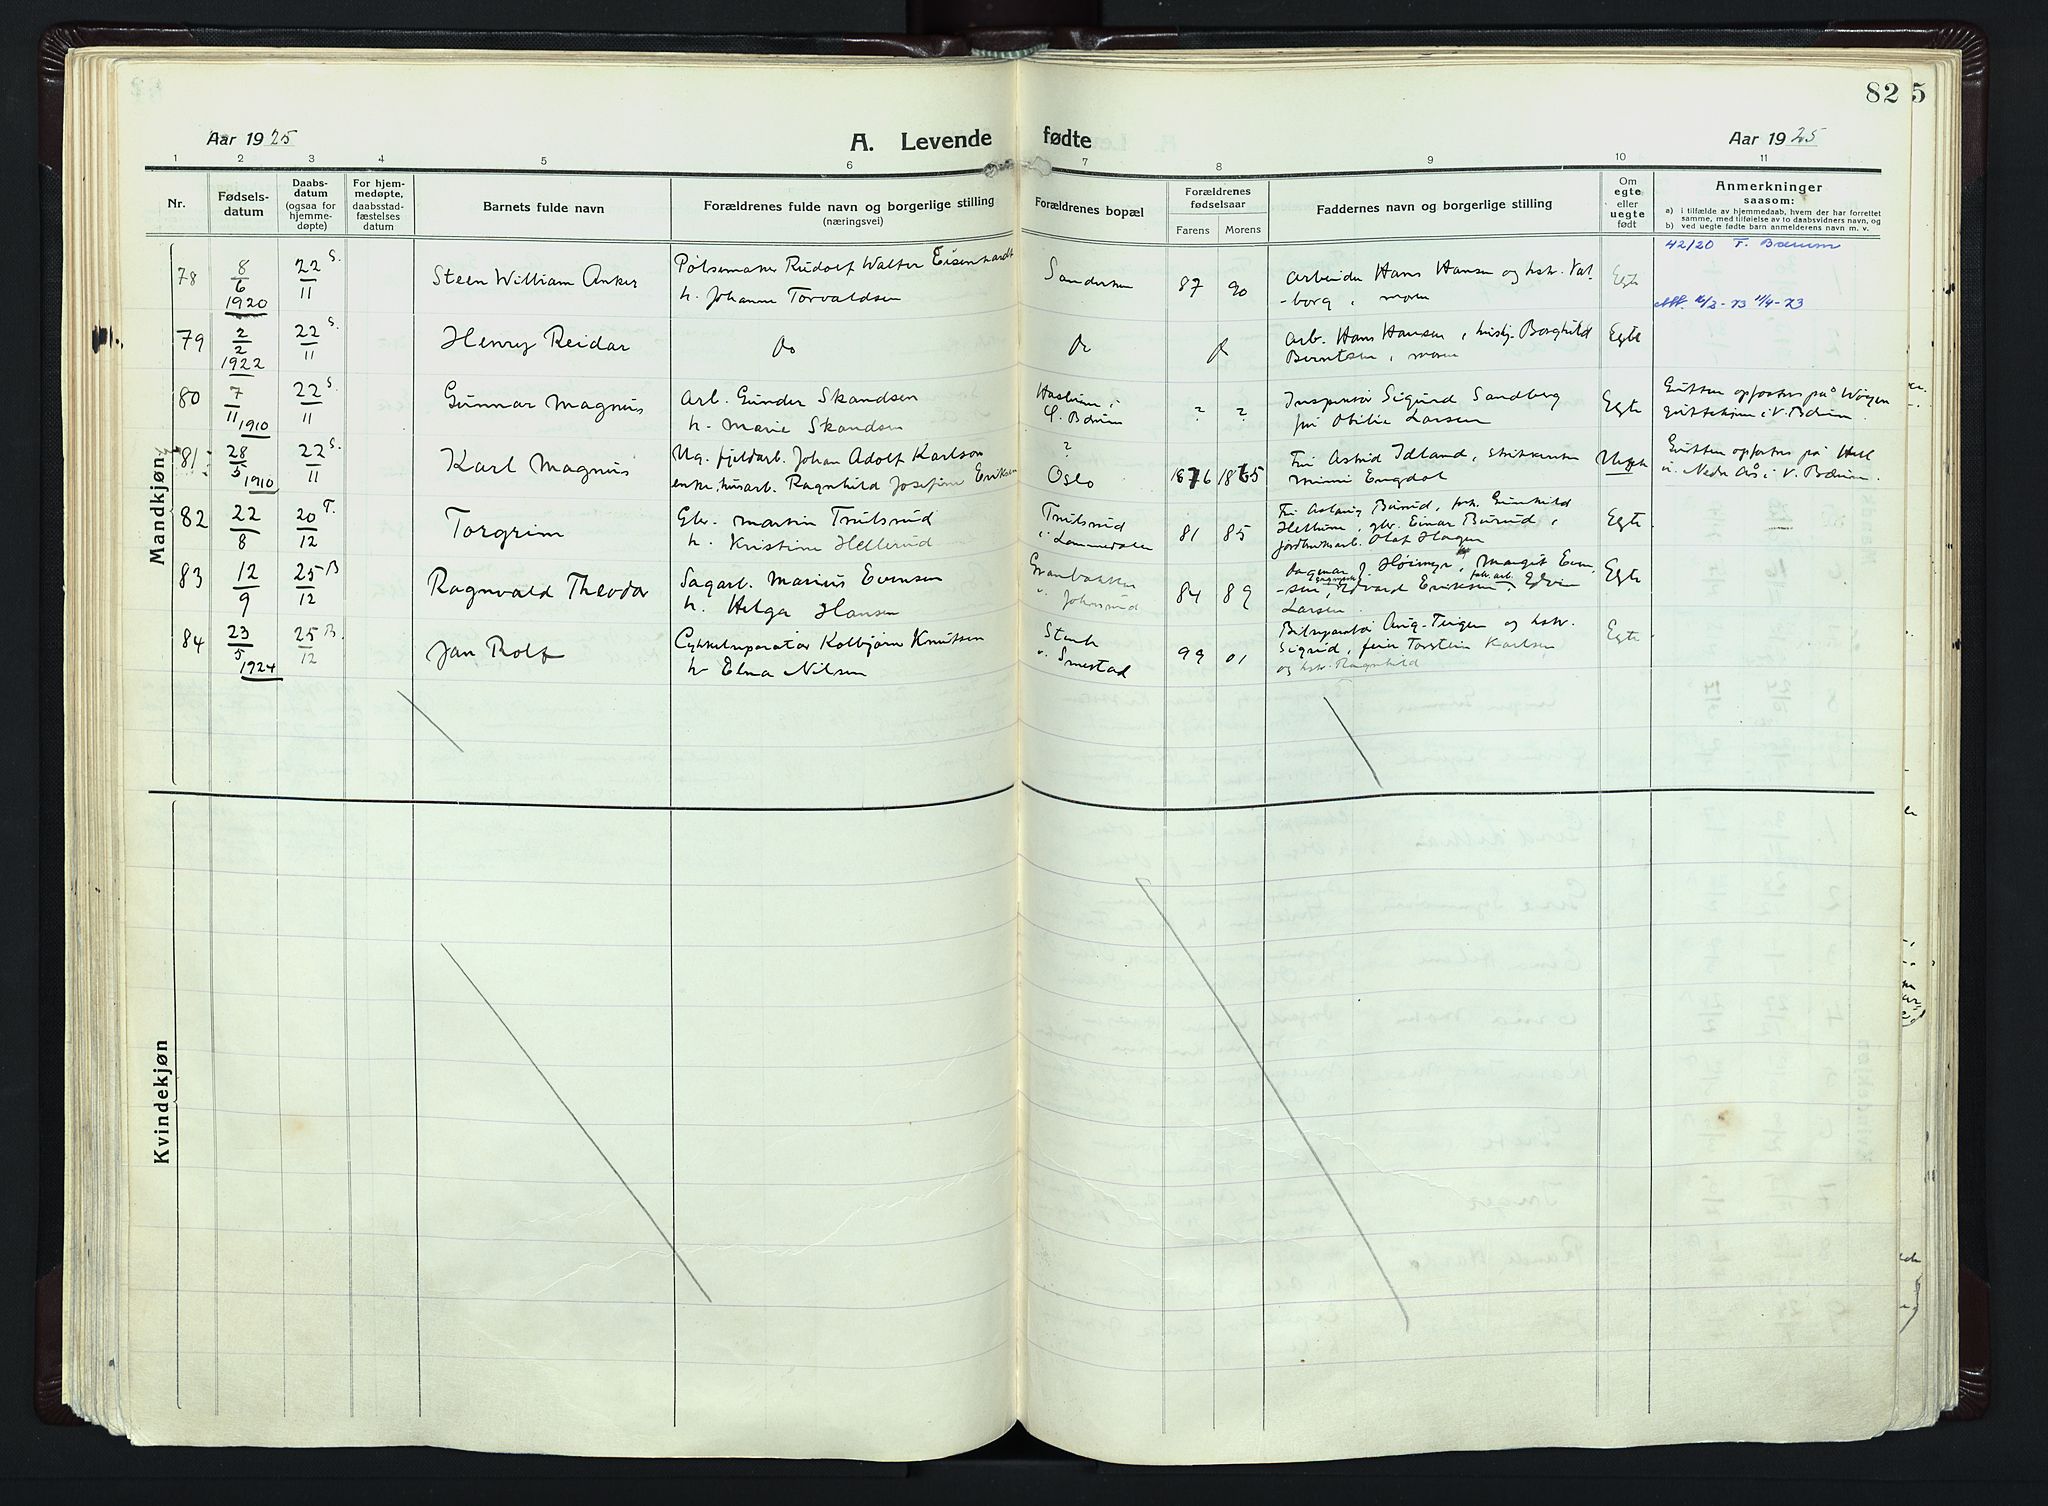 82 5
Aar 1925
A. Levende fødte
Aar 1925
1 2 3 4 5 6 7 8 9 10 11
Nr.
Fødsels-
datum
Daabs-
datum
(ogsaa for
hjemme-
døpte)
For hjem-
medøpte,
daabsstad-
fæstelses
datum
Barnets fulde navn
Forældrenes fulde navn og borgerlige stilling
(næringsvei)
Forældrenes bopæl
Forældrenes
fødselsaar
Farens Morens
Faddernes navn og borgerlige stilling
Om
egte
eller
uegte
født
Anmerkninger
saasom:
a) i tilfælde av hjemmedaab, hvem der har forrettet
samme, med tilføielse av to daabsvidners navn, og
b) ved uegte fødte barn anmelderens navn m. v.
Mandkjøn
78
8/6
1920
22/11 S.
Steen William Anker
Pølsemaker Rudolf Walter Eisenhardt
h. Johanne Torvaldsen
87 90
Arbeider Hans Hansen og hstr. Val-
-borg, moren
Egte
42/20 V. Bærum
79
2/2
1922
22/11 S.
Henry Reidar
do
do
do
Arb. Hans Hansen, Borghild
Berntsen, moren
Egte
80
7/11
1910
22/11 S.
Gunnar Magnus
Arb. Gunder Skandsen
h. Marie Skandsen
Haslum i
Bærum
? ?
Inspektør Sigurd Sandberg
fru Otilie Larsen
Egte
Gutten opfostres på Wøyen
guttehjem i V. Bærum.
81
28/5
1910
22/11 S.
Karl Magnus
Ug. fjeldarb. Johan Adolf Karlson
enke, husarb. Ragnhild Josefine Eriksen
?
Oslo
1876 1865
Fru Astrid Idland,
Mimi Engdal
Uegte
Gutten opfostres på
i V. Bærum.
82
22/8
20/12 T.
Torgrim
Gbr. Martin Trulsrud
h. Kristine Hellerud
Trulsrud
i Lommedalen
81 85
Fru Aslaug Burud, Gunhild
gbr. Einar Burud,
jordbruksarb. Olaf Hagen
Egte.
83
12/9
25/12 B
Ragnvald Theodor
Sagarb. Marius Evensen
h. Helga Hansen
Granbakken
v. Johnsrud
84 89
Dagmar J. Høimyr, Margit Even-
-sen, Edvard Eriksen, Edvin
Larsen.
Egte
84
23/5
1924
25/12 B.
Jan Rolf
Cykkelreparatør Kolbjørn Knutsen
h Elna Nilsen
v. Smestad
99 01
Bilreparatør Teigen og hstr.
Sigrid, feier Torstein Karlsen
og hstr. Ragnhild
Egte
Kvindekjøn